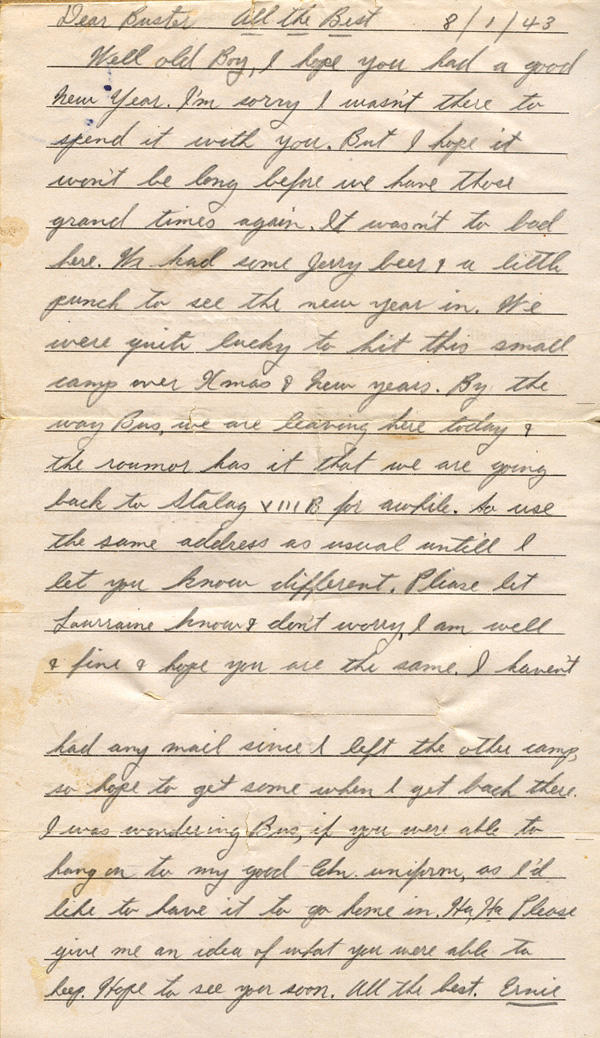 Dear Buster All the Best 8/1/43
Well old Boy, I hope you had a good
New Year. I'm sorry I wasn't there to
spend it with you. But I hope it
won't be long before we have those
grand times again. It wasn't to bad
here. We had some Jerry beer & a little
punch to see the new year in. We
were quite lucky to hit this small
camp over Xmas & New years. By the
way Bus, we are leaving here today &
the roumor has it that we are going
back to Stalag VIIIB for awhile. So use
the same address as usual untill I
let you know different. Please let
Laurraine know & don't worry, I am well
& fine & hope you are the same. I haven't
had any mail since I left the other camp,
so hope to get some when I get back there.
I was wondering Bus, if you were able to
hang on to my good Cdn. uniform, as I'd
like to have it to go home in. Ha, Ha Please
give me an idea of what you were able to
keep. Hope to see you soon. All the best. Ernie